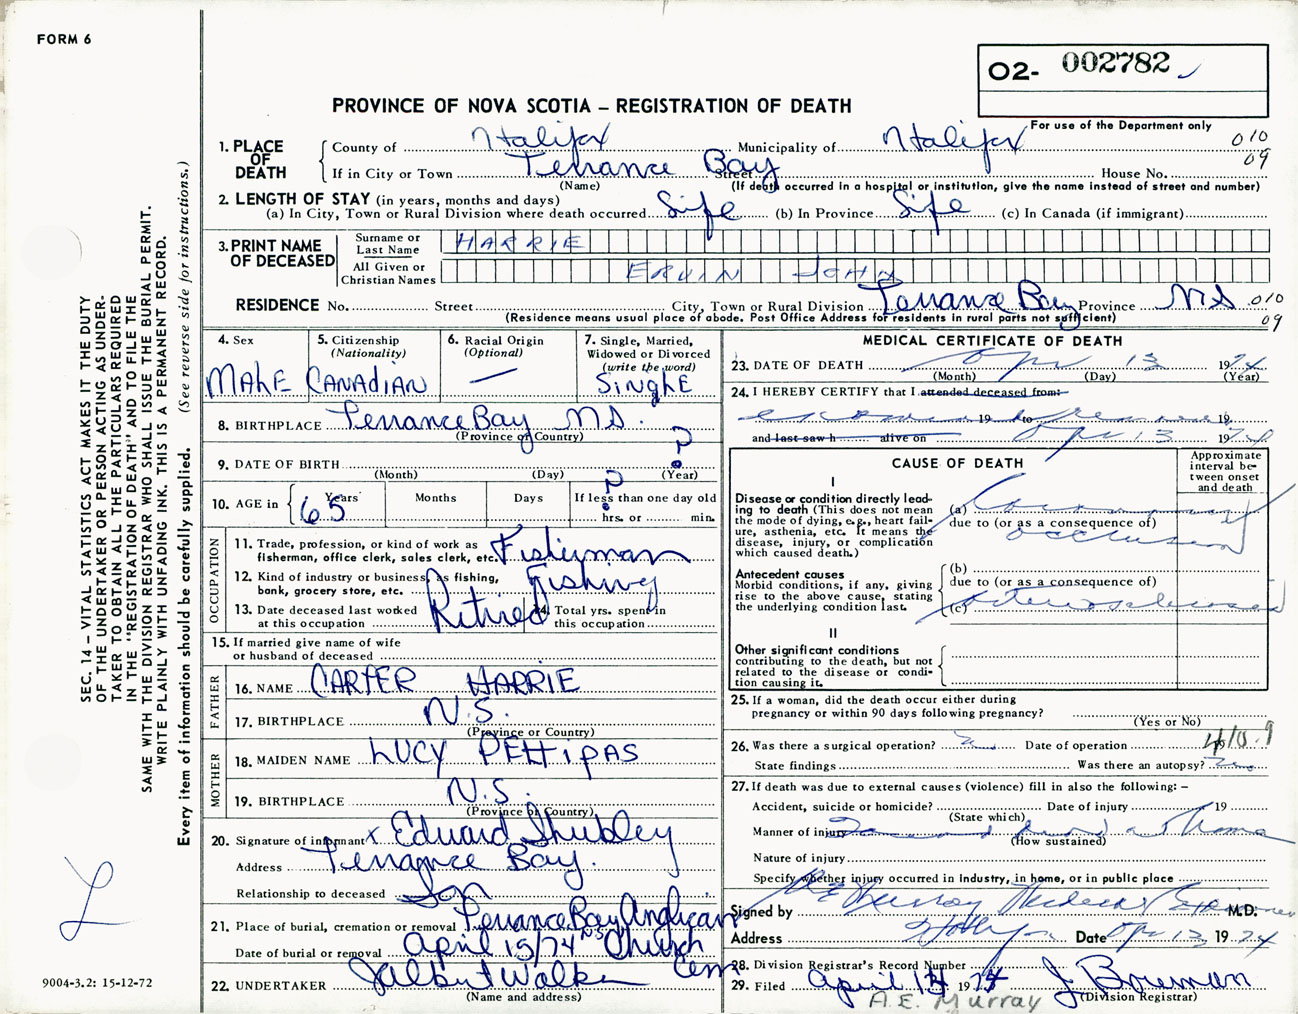 FORM 6
02- 002782
PROVINCE OF NOVA SCOTIA – REGISTRATION OF DEATH
For use of the Department only
010
09
1. PLACE OF DEATH
County of Halifax Municipality of Halifax
If in City or Town Terrance Bay Street House No.
(Name) (If death occurred in a hospital or institution, give the name instead of street and number)
2. LENGTH OF STAY (in years, months and days)
(a) In City, Town or Rural Division where death occurred Life (b) In Province Life (c) In Canada (if immigrant)
3. PRINT NAME OF DECEASED
Surname or Last Name HARRIE
All Given or Christian Names ERVIN JOHN
RESIDENCE No. Street City, Town or Rural Division Terrance Bay Province NS 010
(Residence means usual place of abode. Post Office Address for residents in rural parts not sufficient) 09
4. Sex
MALE
5. Citizenship
(Nationality)
CANADIAN
6. Racial Origin
(Optional)
—
7. Single, Married,
Widowed or Divorced
(write the word)
SINGLE
8. BIRTHPLACE Terrance Bay NS.
(Province or Country)
9. DATE OF BIRTH ?
(Month) (Day) (Year)
10. AGE in Years 65 Months Days If less than one day old ?
hrs. or min.
OCCUPATION
11. Trade, profession, or kind of work as
fisherman, office clerk, sales clerk, etc. Fisherman
12. Kind of industry or business, as fishing,
bank, grocery store, etc. Fishing
13. Date deceased last worked
at this occupation Retired
14. Total yrs. spent in
this occupation
15. If married give name of wife
or husband of deceased
FATHER
16. NAME CARTER HARRIE
17. BIRTHPLACE N.S.
(Province or Country)
MOTHER
18. MAIDEN NAME LUCY PETTIPAS
19. BIRTHPLACE N.S.
(Province or Country)
20. Signature of informant x Edward Shubley
Address Terrance Bay.
Relationship to deceased Son
21. Place of burial, cremation or removal Terrance Bay Anglican
NS Church
Date of burial or removal April 15/74 Cem
22. UNDERTAKER Walker
(Name and address)
MEDICAL CERTIFICATE OF DEATH
23. DATE OF DEATH Apr 13 1974
(Month) (Day) (Year)
24. I HEREBY CERTIFY that I attended deceased from:
19 to 19
and last saw h alive on Apr 13 1974
CAUSE OF DEATH
Approximate
interval be-
tween onset
and death
I
Disease or condition directly lead-
ing to death (This does not mean
the mode of dying, e.g., heart fail-
ure, asthenia, etc. It means the
disease, injury, or complication
which caused death.)
(a) Coronary
due to (or as a consequence of)
occlusion
Antecedent causes
Morbid conditions, if any, giving
rise to the above cause, stating
the underlying condition last.
(b)
due to (or as a consequence of)
(c) Arteriosclerosis
II
Other significant conditions
contributing to the death, but not
related to the disease or condi-
tion causing it.
25. If a woman, did the death occur either during
pregnancy or within 90 days following pregnancy?
(Yes or No)
26. Was there a surgical operation? no Date of operation
State findings Was there an autopsy? no
27. If death was due to external causes (violence) fill in also the following: –
Accident, suicide or homicide? Date of injury 19
(State which)
Manner of injury
(How sustained)
Nature of injury
Specify whether injury occurred in industry, in home, or in public place
Signed by Murray Medical Examiner M.D.
Address Halifax Date Apr 13 1974
28. Division Registrar's Record Number
29. Filed April 1974 J Brennan
(Division Registrar)
A.E. Murray
SEC. 14 – VITAL STATISTICS ACT MAKES IT THE DUTY
OF THE UNDERTAKER OR PERSON ACTING AS UNDER-
TAKER TO OBTAIN ALL THE PARTICULARS REQUIRED
IN THE "REGISTRATION OF DEATH" AND TO FILE THE
SAME WITH THE DIVISION REGISTRAR WHO SHALL ISSUE THE BURIAL PERMIT.
WRITE PLAINLY WITH UNFADING INK. THIS IS A PERMANENT RECORD.
Every item of information should be carefully supplied. (See reverse side for instructions.)
9004-3.2: 15-12-72